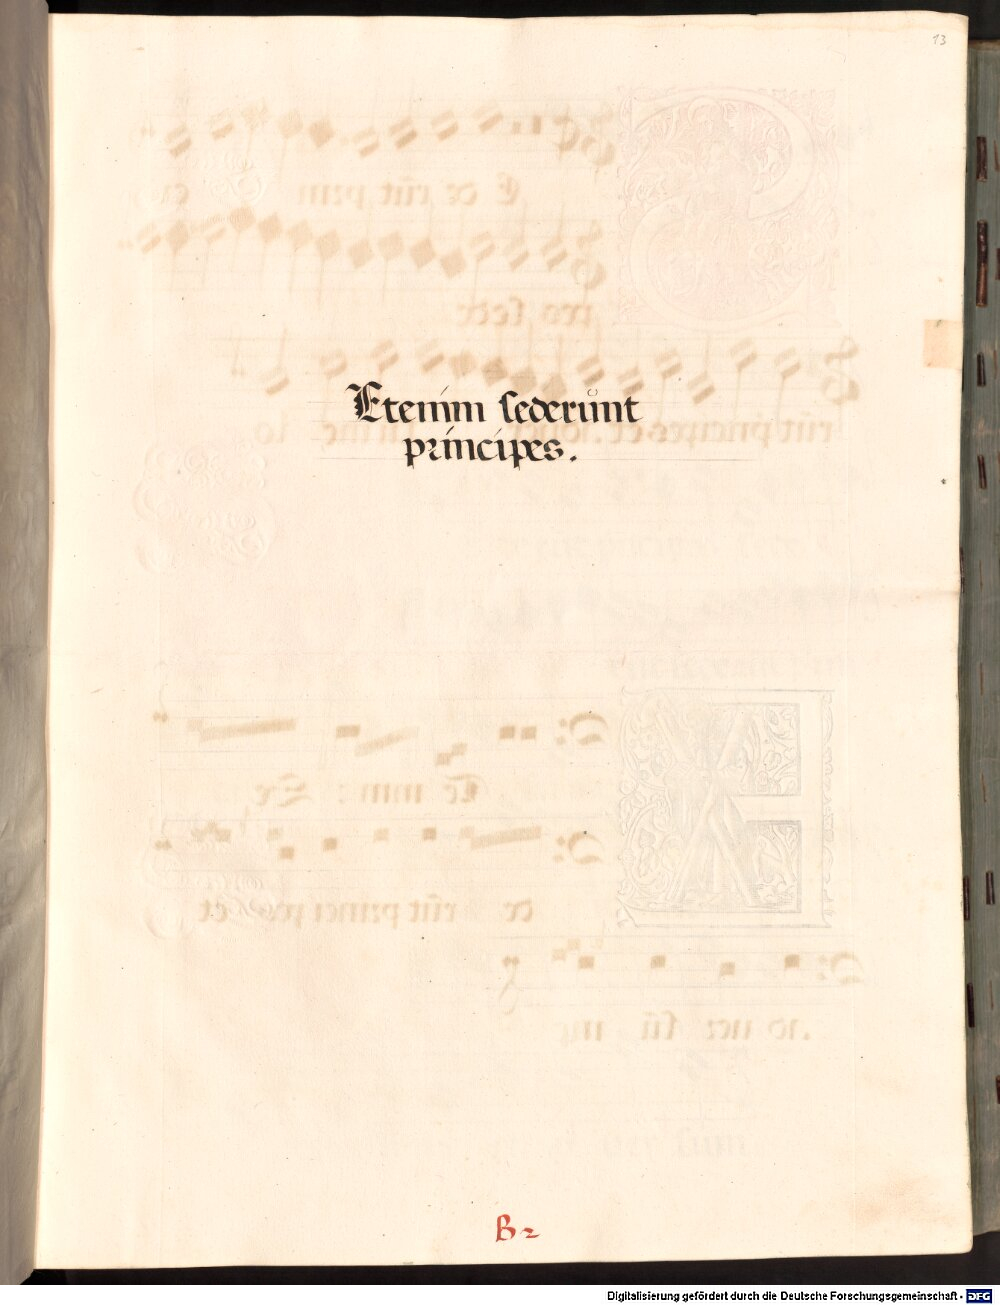 13
Etenim sederunt
principes.
B2
Digitalisierung gefördert durch die Deutsche Forschungsgemeinschaft - DFG